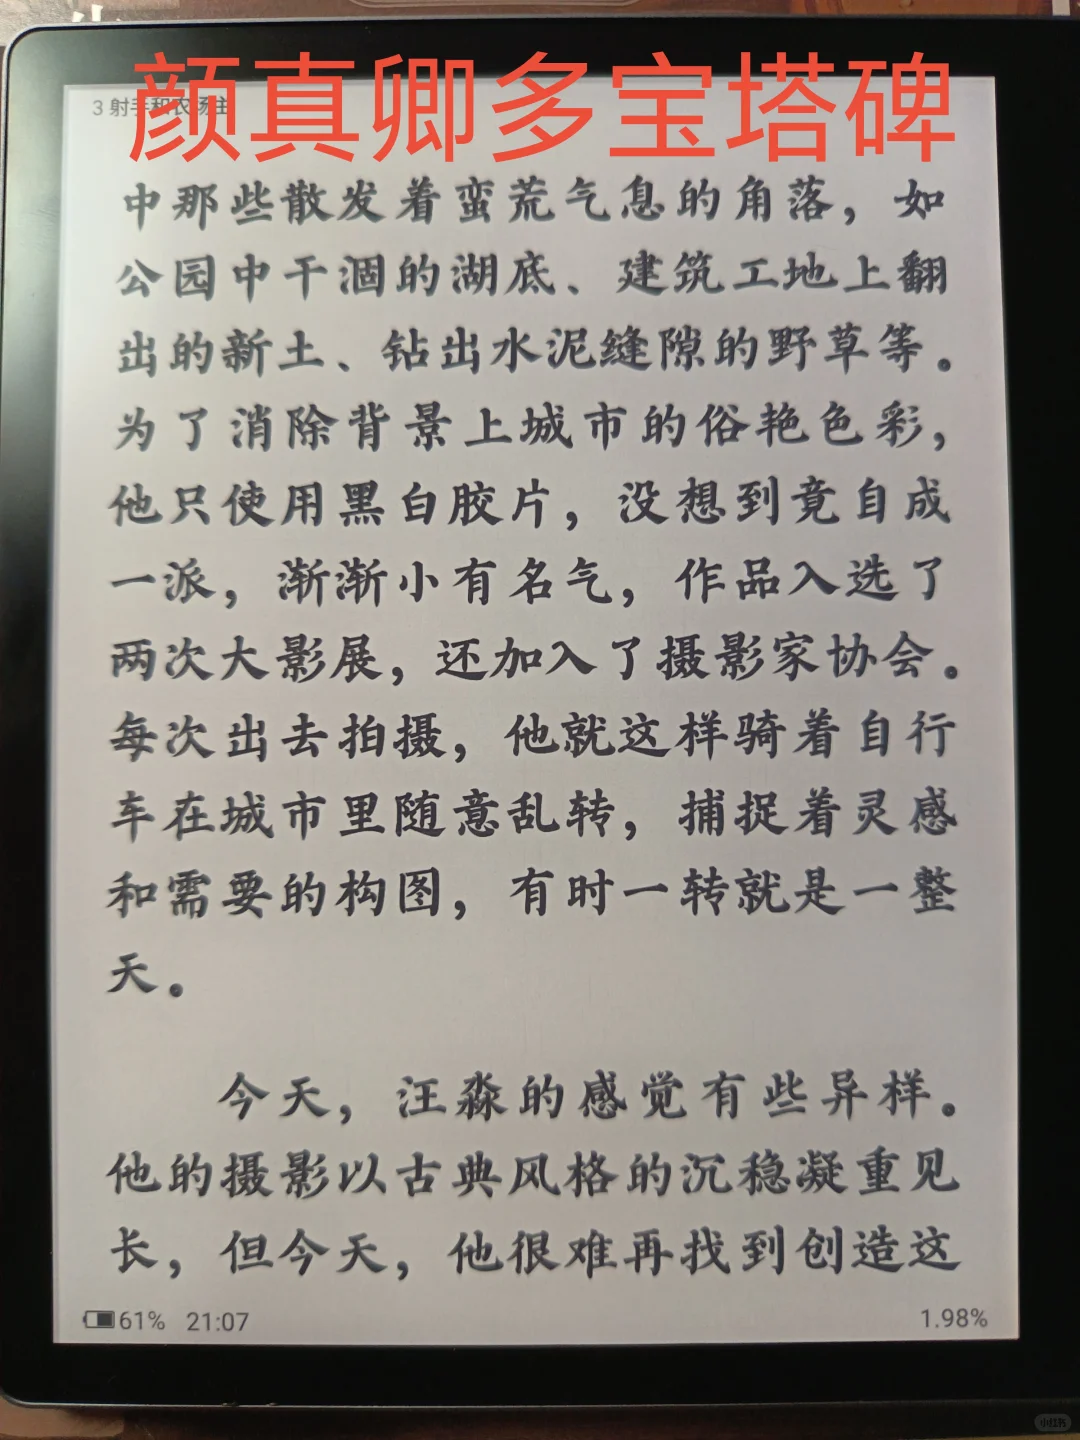 颜真卿多宝塔碑
3 射手和农场主
中那些散发着蛮荒气息的角落，如
公园中干涸的湖底、建筑工地上翻
出的新土、钻出水泥缝隙的野草等。
为了消除背景上城市的俗艳色彩，
他只使用黑白胶片，没想到竟自成
一派，渐渐小有名气，作品入选了
两次大影展，还加入了摄影家协会。
每次出去拍摄，他就这样骑着自行
车在城市里随意乱转，捕捉着灵感
和需要的构图，有时一转就是一整
天。
今天，汪淼的感觉有些异样。
他的摄影以古典风格的沉稳凝重见
长，但今天，他很难再找到创造这
61% 21:07
1.98%
小红书